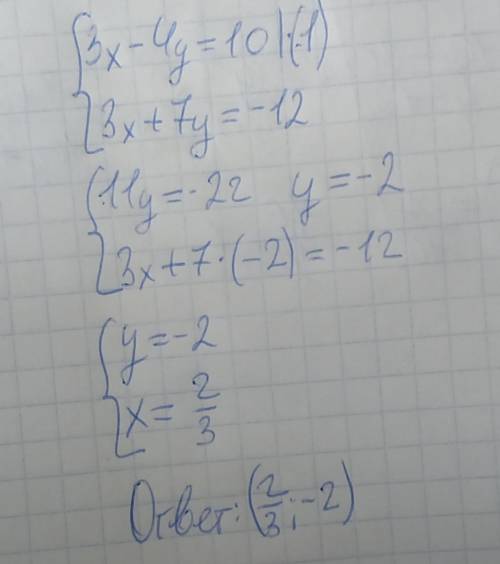 {3x-4y=10|·(-1)
{3x+7y=-12
{11y=-22 y=-2
{3x+7·(-2)=-12
{y=-2
{x=2/3
Ответ: (2/3; -2)